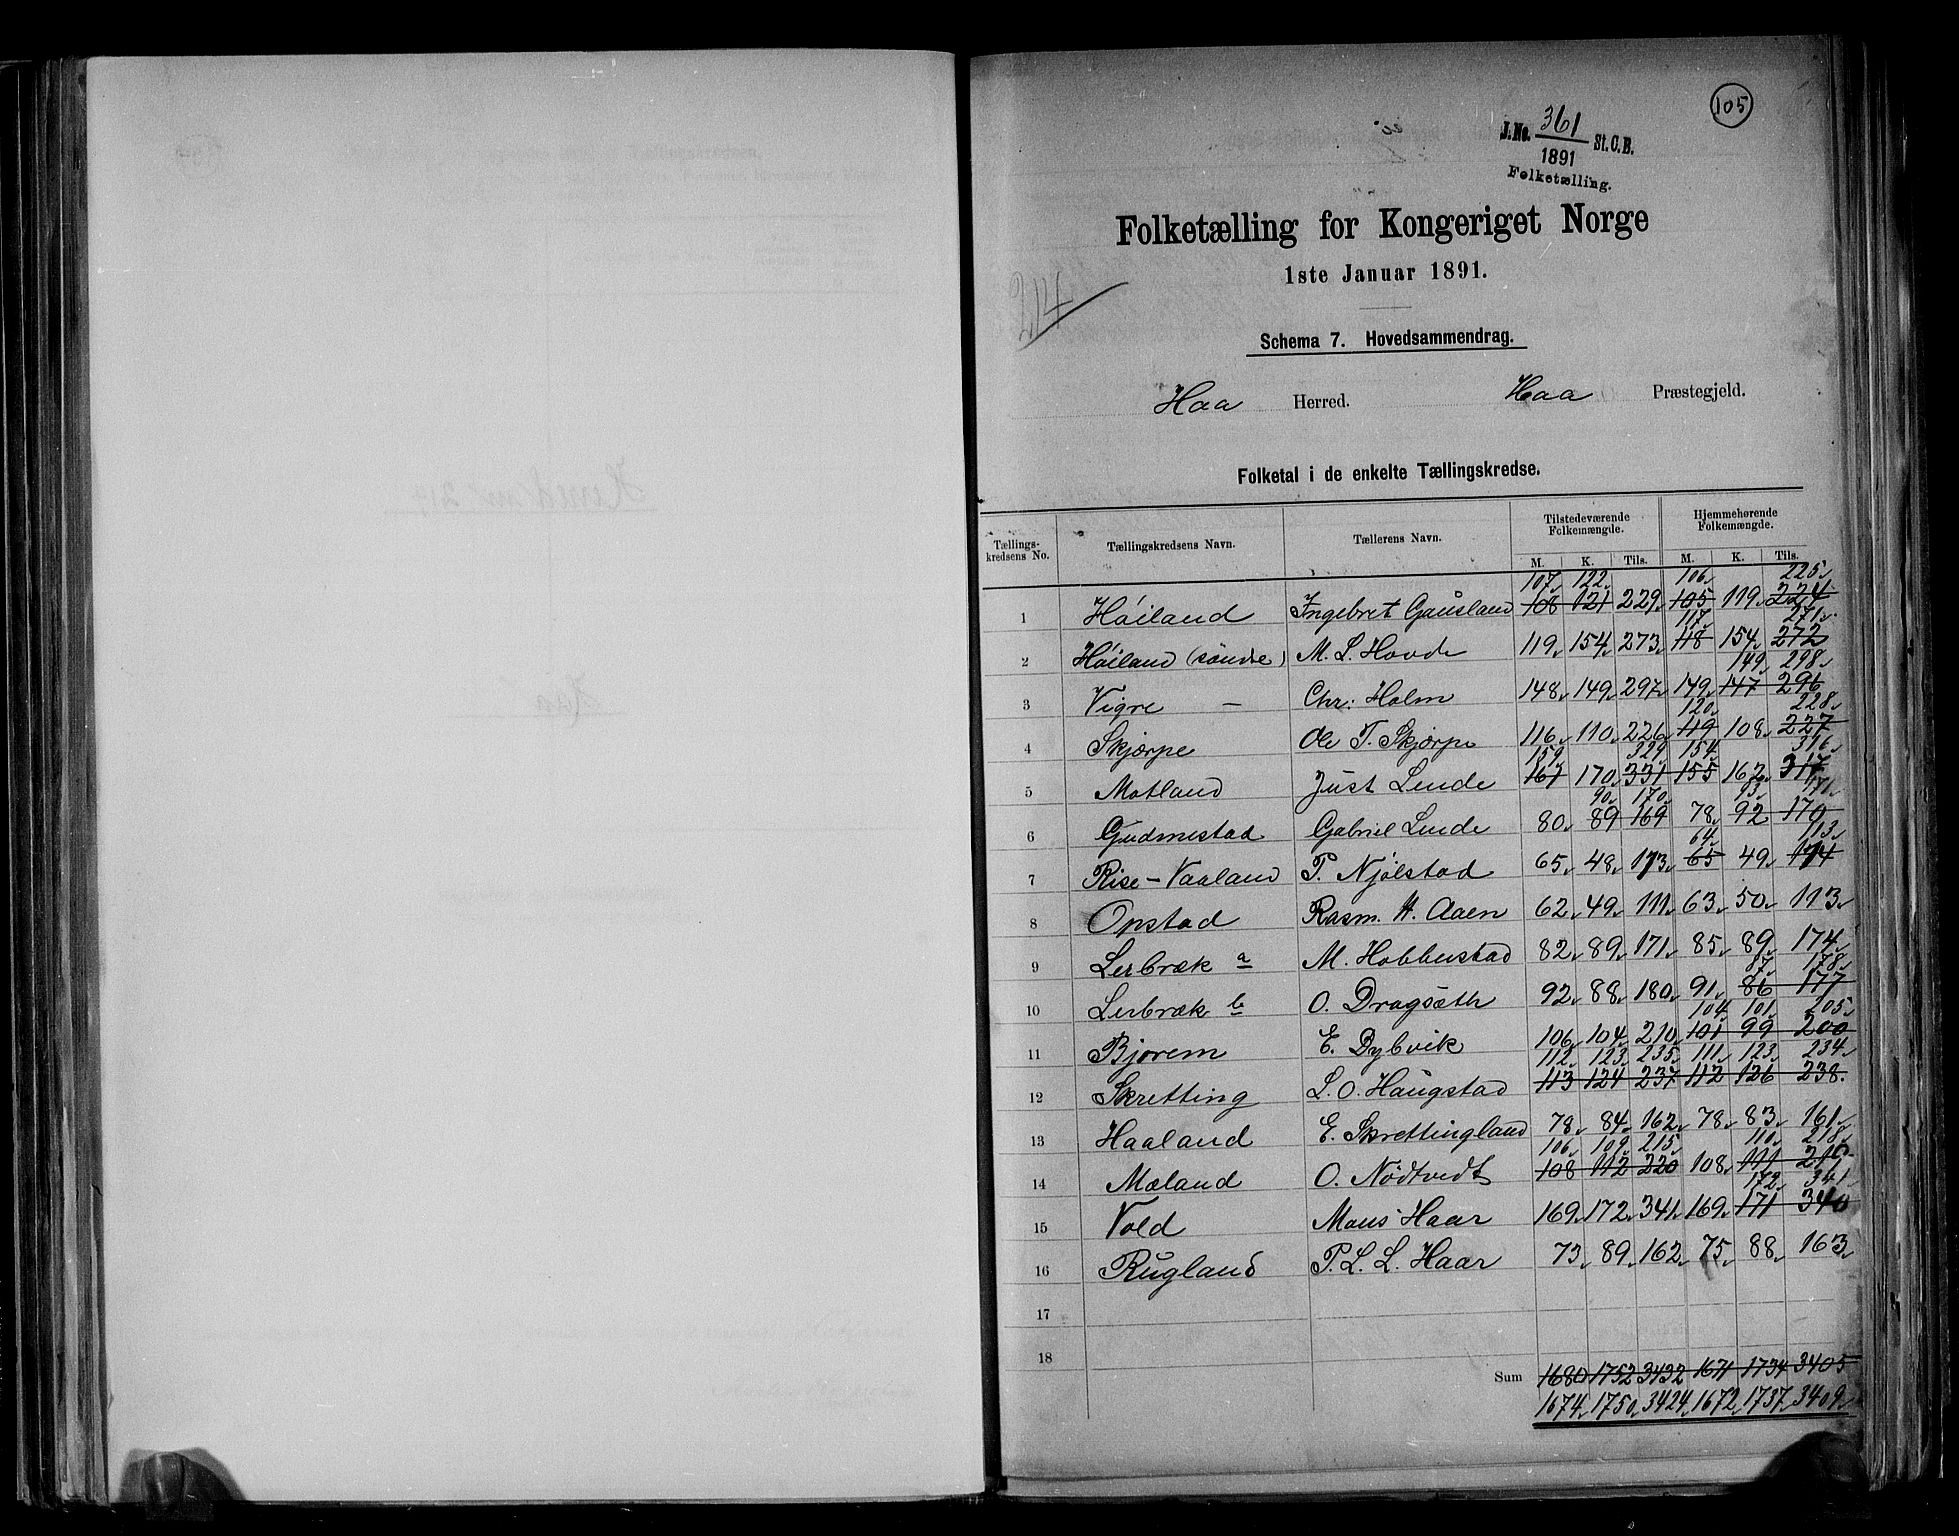 105
J.No. 361 St.C.B.
1891
Folketælling.
Folketælling for Kongeriget Norge
1ste Januar 1891.
214
Schema 7. Hovedsammendrag.
Haa Herred. Haa Præstegjeld.
Folketal i de enkelte Tællingskredse.
Tællings-kredsens No. Tællingskredsens Navn. Tællerens Navn. Tilstedeværende Folkemængde. Hjemmehørende Folkemængde.
M. K. Tils. M. K. Tils.
107 122 106 225
1 Høiland Ingebret Gausland 108 121 229 105 119 224
117 271
2 Høiland (søndre) M. L. Hovde 119 154 273 118 154 272
149 298
3 Vigre — Chr. Holm 148 149 297 149 147 296
120 228
4 Skjærpe Ole T. Skjærpe 116 110 226 119 108 227
159 329 154 316
5 Motland Just Lende 161 170 331 155 162 317
90 170 93 171
6 Gudmestad Gabriel Lende 80 89 169 78 92 170
64 113
7 Rise-Vaaland T. Njølstad 65 48 113 65 49 114
8 Opstad Rasm. H. Aaen 62 49 111 63 50 113
9 Lerbræk a M. Hobberstad 82 89 171 85 89 174
87 178
10 Lerbræk b O. Dragsæth 92 88 180 91 86 177
104 101 205
11 Bjorem E. Dybvik 106 104 210 101 99 200
112 123 235 111 123 234
12 Skretting L. O. Haugstad 113 124 237 112 126 238
13 Haaland E. Skrettingland 78 84 162 78 83 161
106 109 215 110 218
14 Mæland O. Nødtvedt 108 112 220 108 111 219
172 341
15 Vold Maus Haar 169 172 341 169 171 340
16 Rugland P. L. L. Haar 73 89 162 75 88 163
17
18
Sum 1680 1752 3432 1671 1734 3405
1674 1750 3424 1672 1737 3409